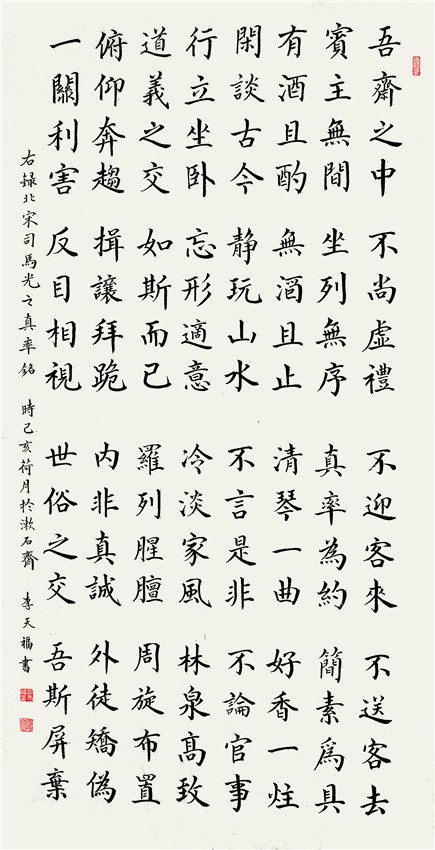 吾齋之中 不尚虛禮 不迎客來 不送客去
賓主無間 坐列無序 真率為約 簡素爲具
有酒且酌 無酒且止 清琴一曲 好香一炷
閑談古今 靜玩山水 不言是非 不論官事
行立坐卧 忘形適意 冷淡家風 林泉髙致
道義之交 如斯而已 羅列腥膻 周旋布置
俯仰奔趨 揖讓拜跪 内非真誠 外徒矯偽
一關利害 反目相視 世俗之交 吾斯屏棄
右錄北宋司馬光之真率銘 時己亥荷月於漱石齋 李天福書